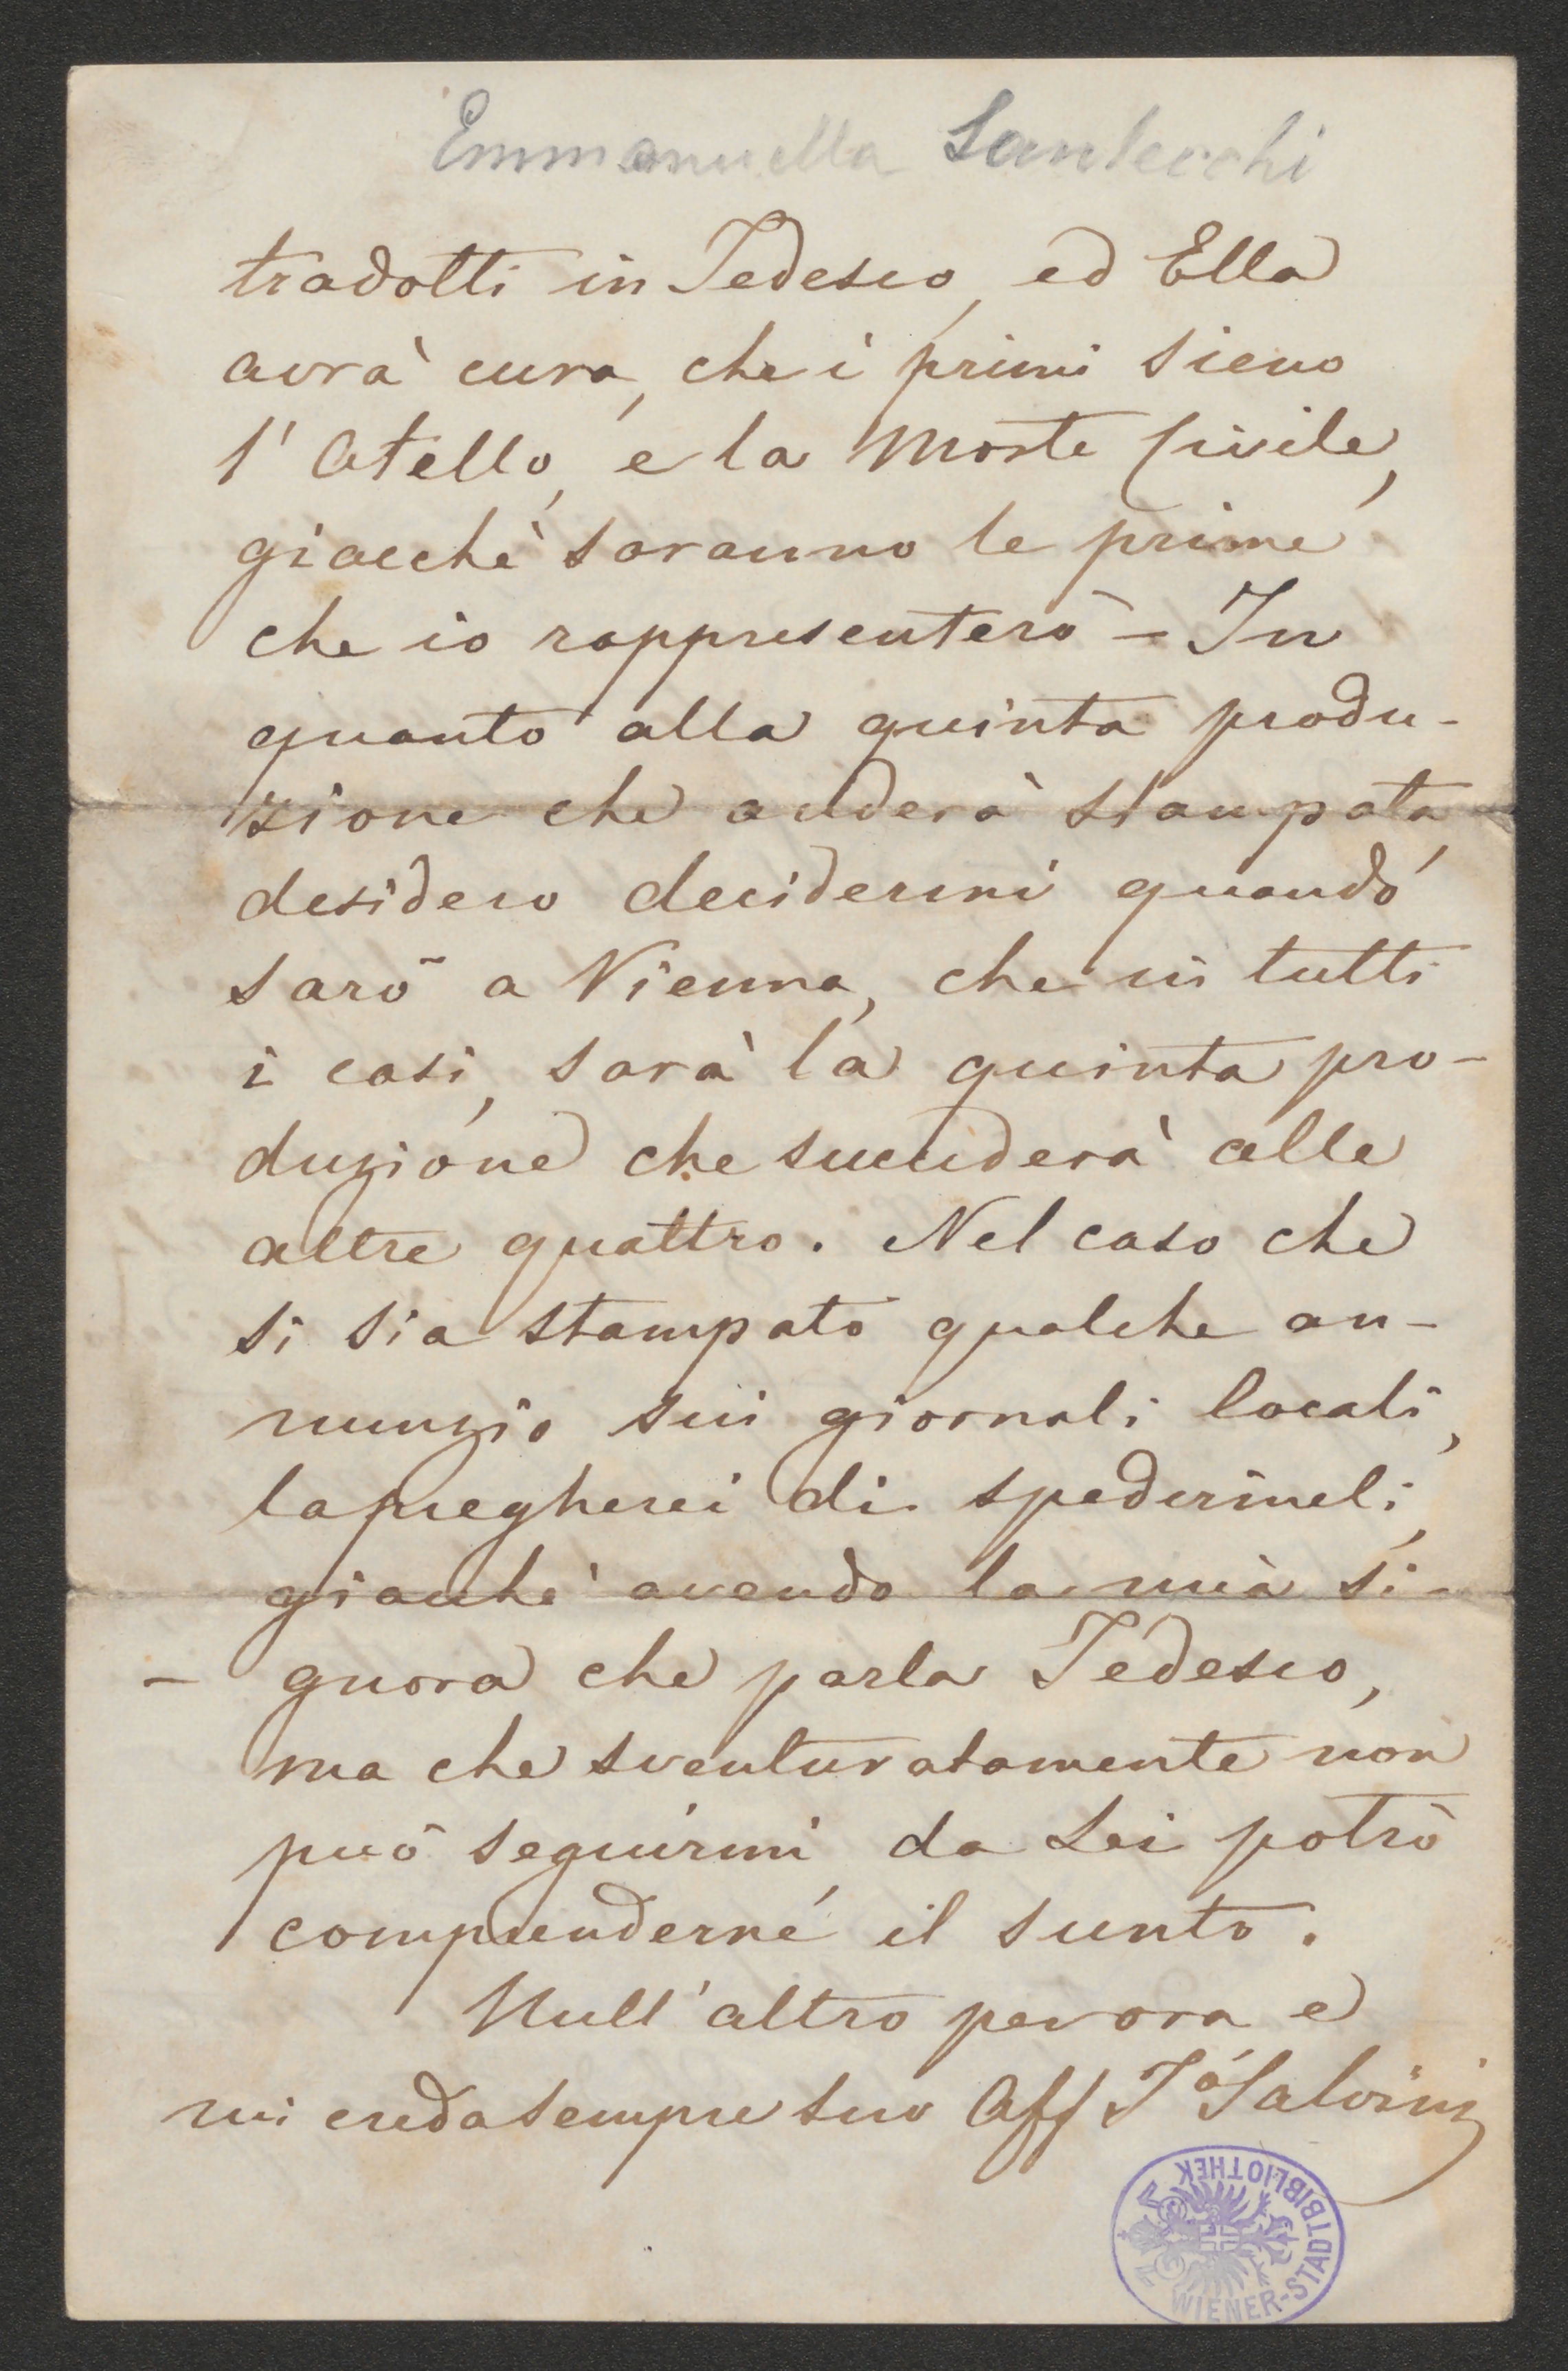 Emmanuella Santecchi
tradotti in Tedesco, ed Ella
avrà cura, che i primi sieno
l'Otello, e la Morte Civile,
giacchè saranno le prime
che io rappresenterò – In
quanto alla quinta produ-
zione che anderà stampata,
desidero decidermi quando
sarò a Vienna, che in tutti
i casi, sarà la quinta pro-
duzione che succederà alle
altre quattro. Nel caso che
si sia stampato qualche an-
nunzio sui giornali locali,
la pregherei di spedirmeli,
giacchè avendo la mia si-
- gnora che parla Tedesco,
ma che sventuratamente non
può seguirmi, da Lei potrò
comprenderne il sunto.
Null'altro per ora e
mi creda sempre suo Aff To Salvini
WIENER-STADTBIBLIOTHEK